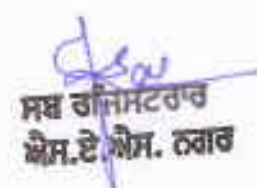 ਸਬ ਰਜਿਸਟਰਾਰ
ਐਸ.ਏ.ਐਸ. ਨਗਰ